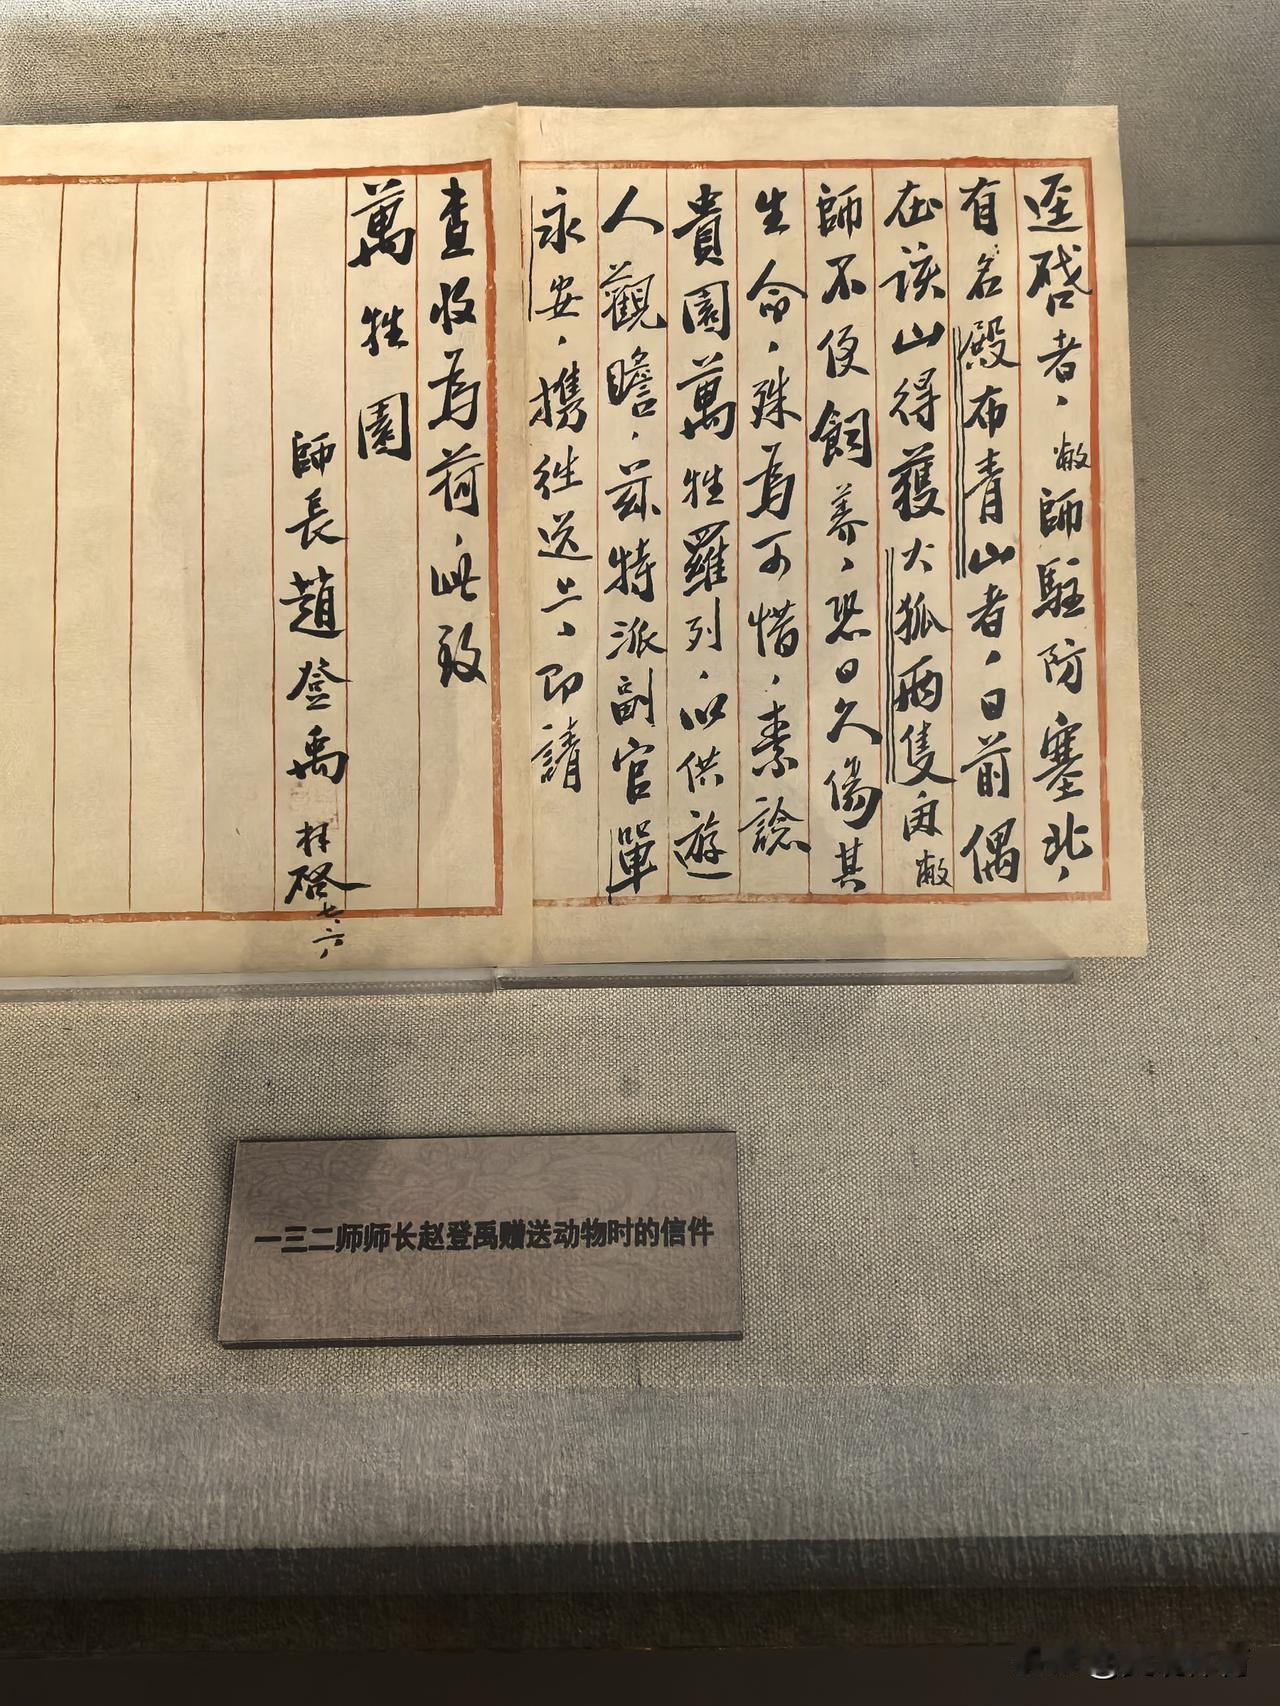 逕啓者，敝師駐防塞北，
有名殿布青山者，日前偶
在該山得獲大狐兩隻因敝
師不便飼養，恐日久傷其
生命，殊為可惜，素諗
貴園萬牲羅列，以供遊
人觀瞻，茲特派副官單
永安，攜往送上，即請
查收為荷，此致
萬牲園
師長趙登禹 拜啓 七、六、
一三二师师长赵登禹赠送动物时的信件